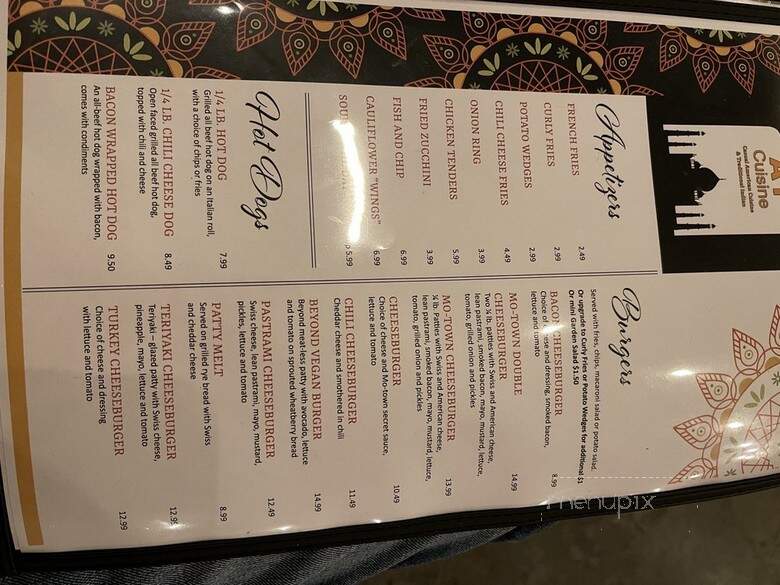 Cuisine
Casual American Cuisine
& Traditional Indian
Appetizers
FRENCH FRIES 2.49
CURLY FRIES 2.99
POTATO WEDGES 2.99
CHILI CHEESE FRIES 4.49
ONION RING 3.99
CHICKEN TENDERS 5.99
FRIED ZUCCHINI 3.99
FISH AND CHIP 6.99
CAULIFLOWER "WINGS" 6.99
5.99
Hot Dogs
1/4 LB. HOT DOG 7.99
Grilled all beef hot dog on an Italian roll,
with a choice of chips or fries
1/4 LB. CHILI CHEESE DOG 8.49
Open faced grilled all beef hot dog,
topped with chili and cheese
BACON WRAPPED HOT DOG 9.50
An all-beef hot dog wrapped with bacon,
comes with condiments
Burgers
Served with fries, chips, macaroni salad or potato salad.
Or upgrade to Curly Fries or Potato Wedges for additional $1
Or mini Garden Salad $1.50
BACON CHEESEBURGER 8.99
Choice of cheese and dressing, smoked bacon,
lettuce and tomato
MO-TOWN DOUBLE
CHEESEBURGER 14.99
Two ¼ lb. patties with Swiss and American cheese,
lean pastrami, smoked bacon, mayo, mustard, lettuce,
tomato, grilled onion and pickles
MO-TOWN CHEESEBURGER 13.99
¼ lb. Patties with Swiss and American cheese,
lean pastrami, smoked bacon, mayo, mustard, lettuce,
tomato, grilled onion and pickles
CHEESEBURGER 10.49
Choice of cheese and Mo-town secret sauce,
lettuce and tomato
CHILI CHEESEBURGER 11.49
Cheddar cheese and smothered in chili
BEYOND VEGAN BURGER 14.99
Beyond meat-less patty with avocado, lettuce
and tomato on sprouted wheatberry bread
PASTRAMI CHEESEBURGER 12.49
Swiss cheese, lean pastrami, mayo, mustard,
pickles, lettuce and tomato
PATTY MELT 8.99
Served on grilled rye bread with Swiss
and cheddar cheese
TERIYAKI CHEESEBURGER 12.99
Teriyaki – glazed patty with Swiss cheese,
pineapple, mayo, lettuce and tomato
TURKEY CHEESEBURGER 12.99
Choice of cheese and dressing
with lettuce and tomato
menupix